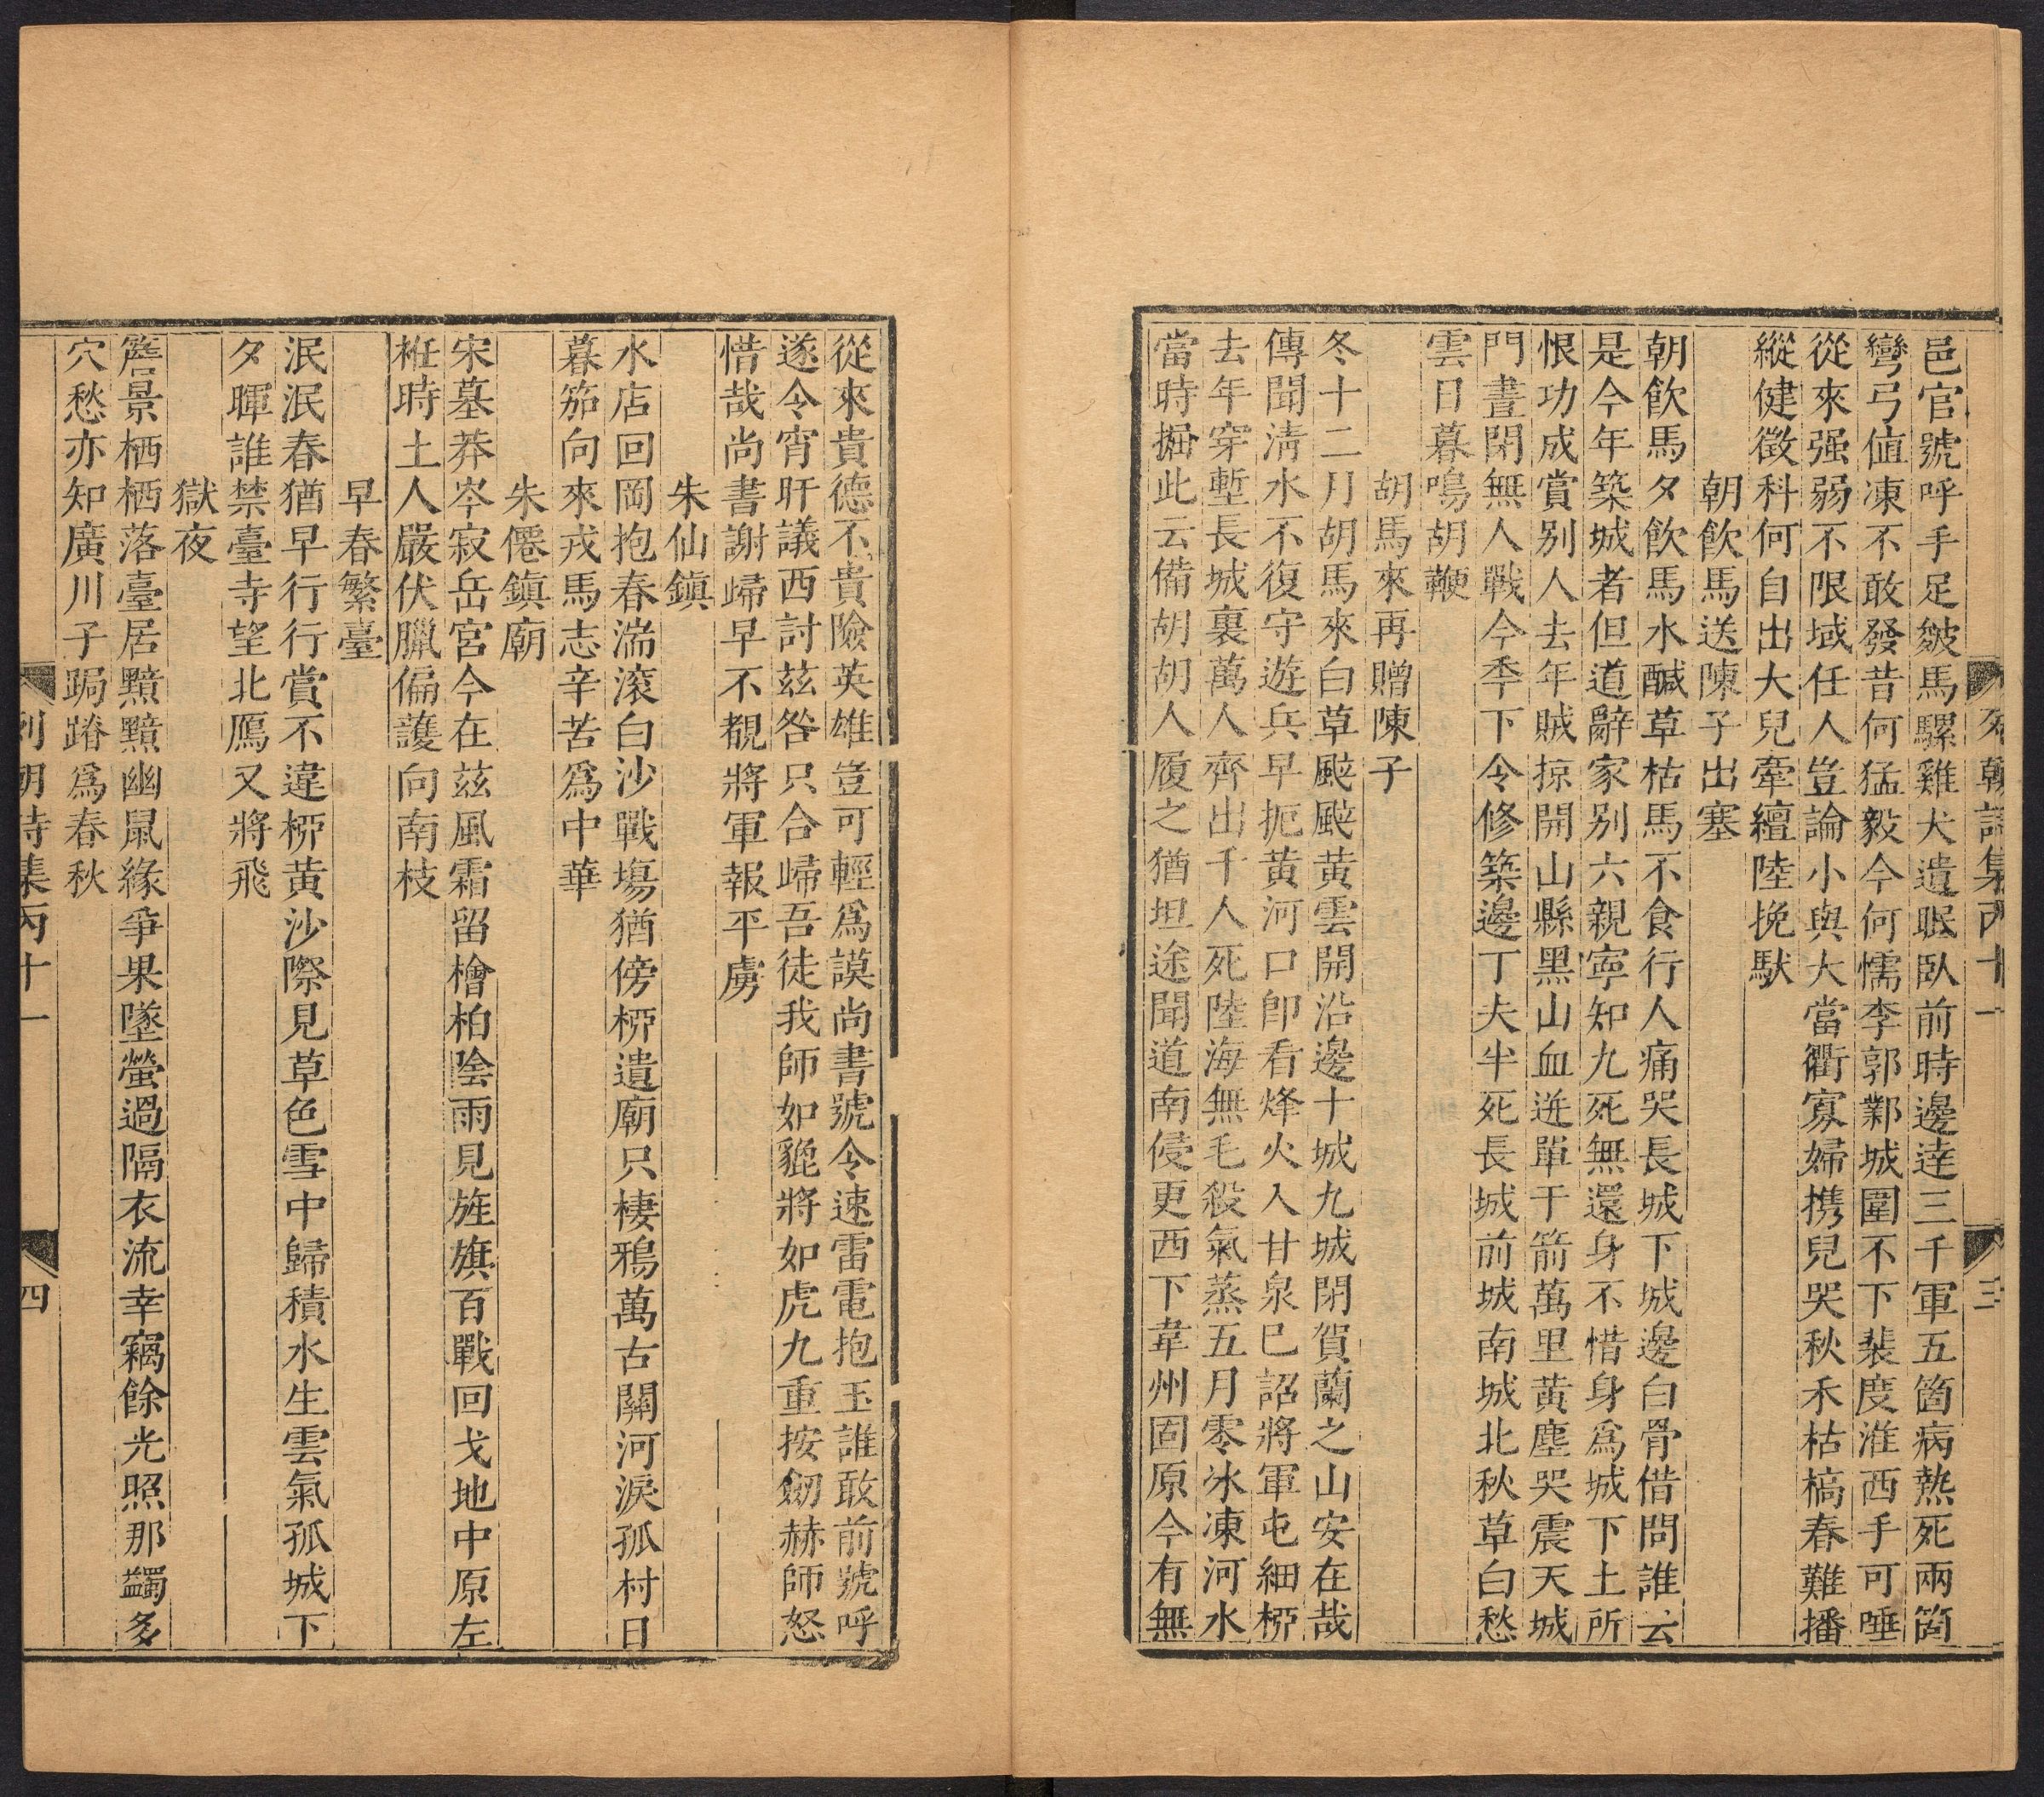 邑官號呼手足皴馬騾雞犬遺眠臥前時邊達三千軍五箇病熱死兩箇
彎弓值凍不敢發昔何猛毅今何懦李郭鄴城圍不下裴度淮西手可唾
從來强弱不限域任人豈論小與大當衢寡婦携兒哭秋禾枯槁春難播
縱健徵科何自出大兒牽纏陸挽馱
朝飲馬送陳子出塞
朝飲馬夕飲馬水醎草枯馬不食行人痛哭長城下城邊白骨借問誰云
是今年築城者但道辭家别六親寧知九死無還身不惜身爲城下土所
恨功成賞别人去年賊掠開山縣黑山血迸單于箭萬里黄塵哭震天城
門晝閉無人戰今季下令修築邊丁夫半死長城前城南城北秋草白愁
雲日暮鳴胡鞭
胡馬來再贈陳子
冬十二月胡馬來白草颼颼黄雲開沿邊十城九城閉賀蘭之山安在哉
傳聞清水不復守遊兵早扼黄河口卽看烽火入甘泉已詔將軍屯細桺
去年穿塹長城裏萬人齊出千人死陸海無毛殺氣蒸五月零冰凍河水
當時掘此云備胡胡人履之猶坦途聞道南侵更西下韋州固原今有無
列朝詩集丙十一
三
從來貴德不貴險英雄豈可輕爲謨尚書號令速雷電抱玉誰敢前號呼
遂令宵旰議西討茲咎只合歸吾徒我師如貔將如虎九重按劒赫師怒
惜哉尚書謝歸早不覩將軍報平虜
朱仙鎮
水店回岡抱春湍滚白沙戰塲猶傍桺遺廟只棲鴉萬古關河淚孤村日
暮笳向來戎馬志辛苦爲中華
朱僊鎮廟
宋墓莽岑寂岳宮今在茲風霜留檜柏陰雨見旌旗百戰回戈地中原左
袵時土人嚴伏臘偏護向南枝
早春繁臺
泯泯春猶早行行賞不違桺黄沙際見草色雪中歸積水生雲氣孤城下
夕暉誰禁臺寺望北鴈又將飛
獄夜
簷景栖栖落臺居黯黯幽鼠緣爭果墜螢過隔衣流幸竊餘光照那蠲多
穴愁亦知廣川子跼蹐爲春秋
列朝詩集丙十一
四